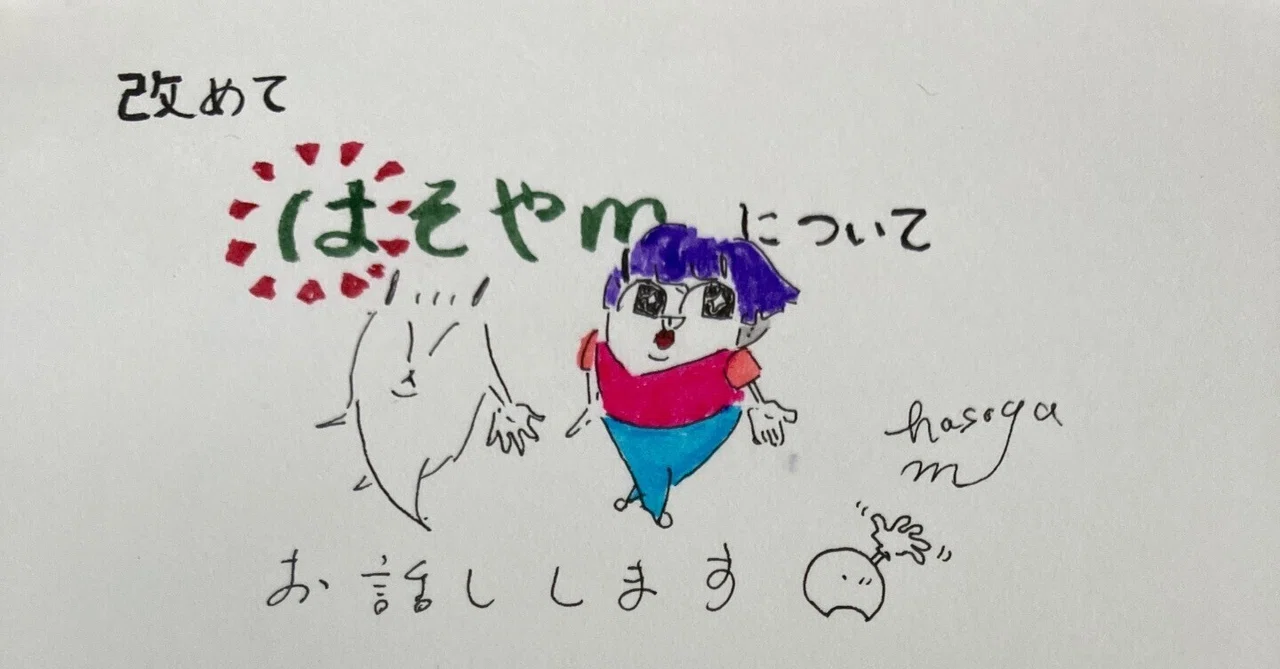 改めて
はそやm について
hasoya
m
お話しします